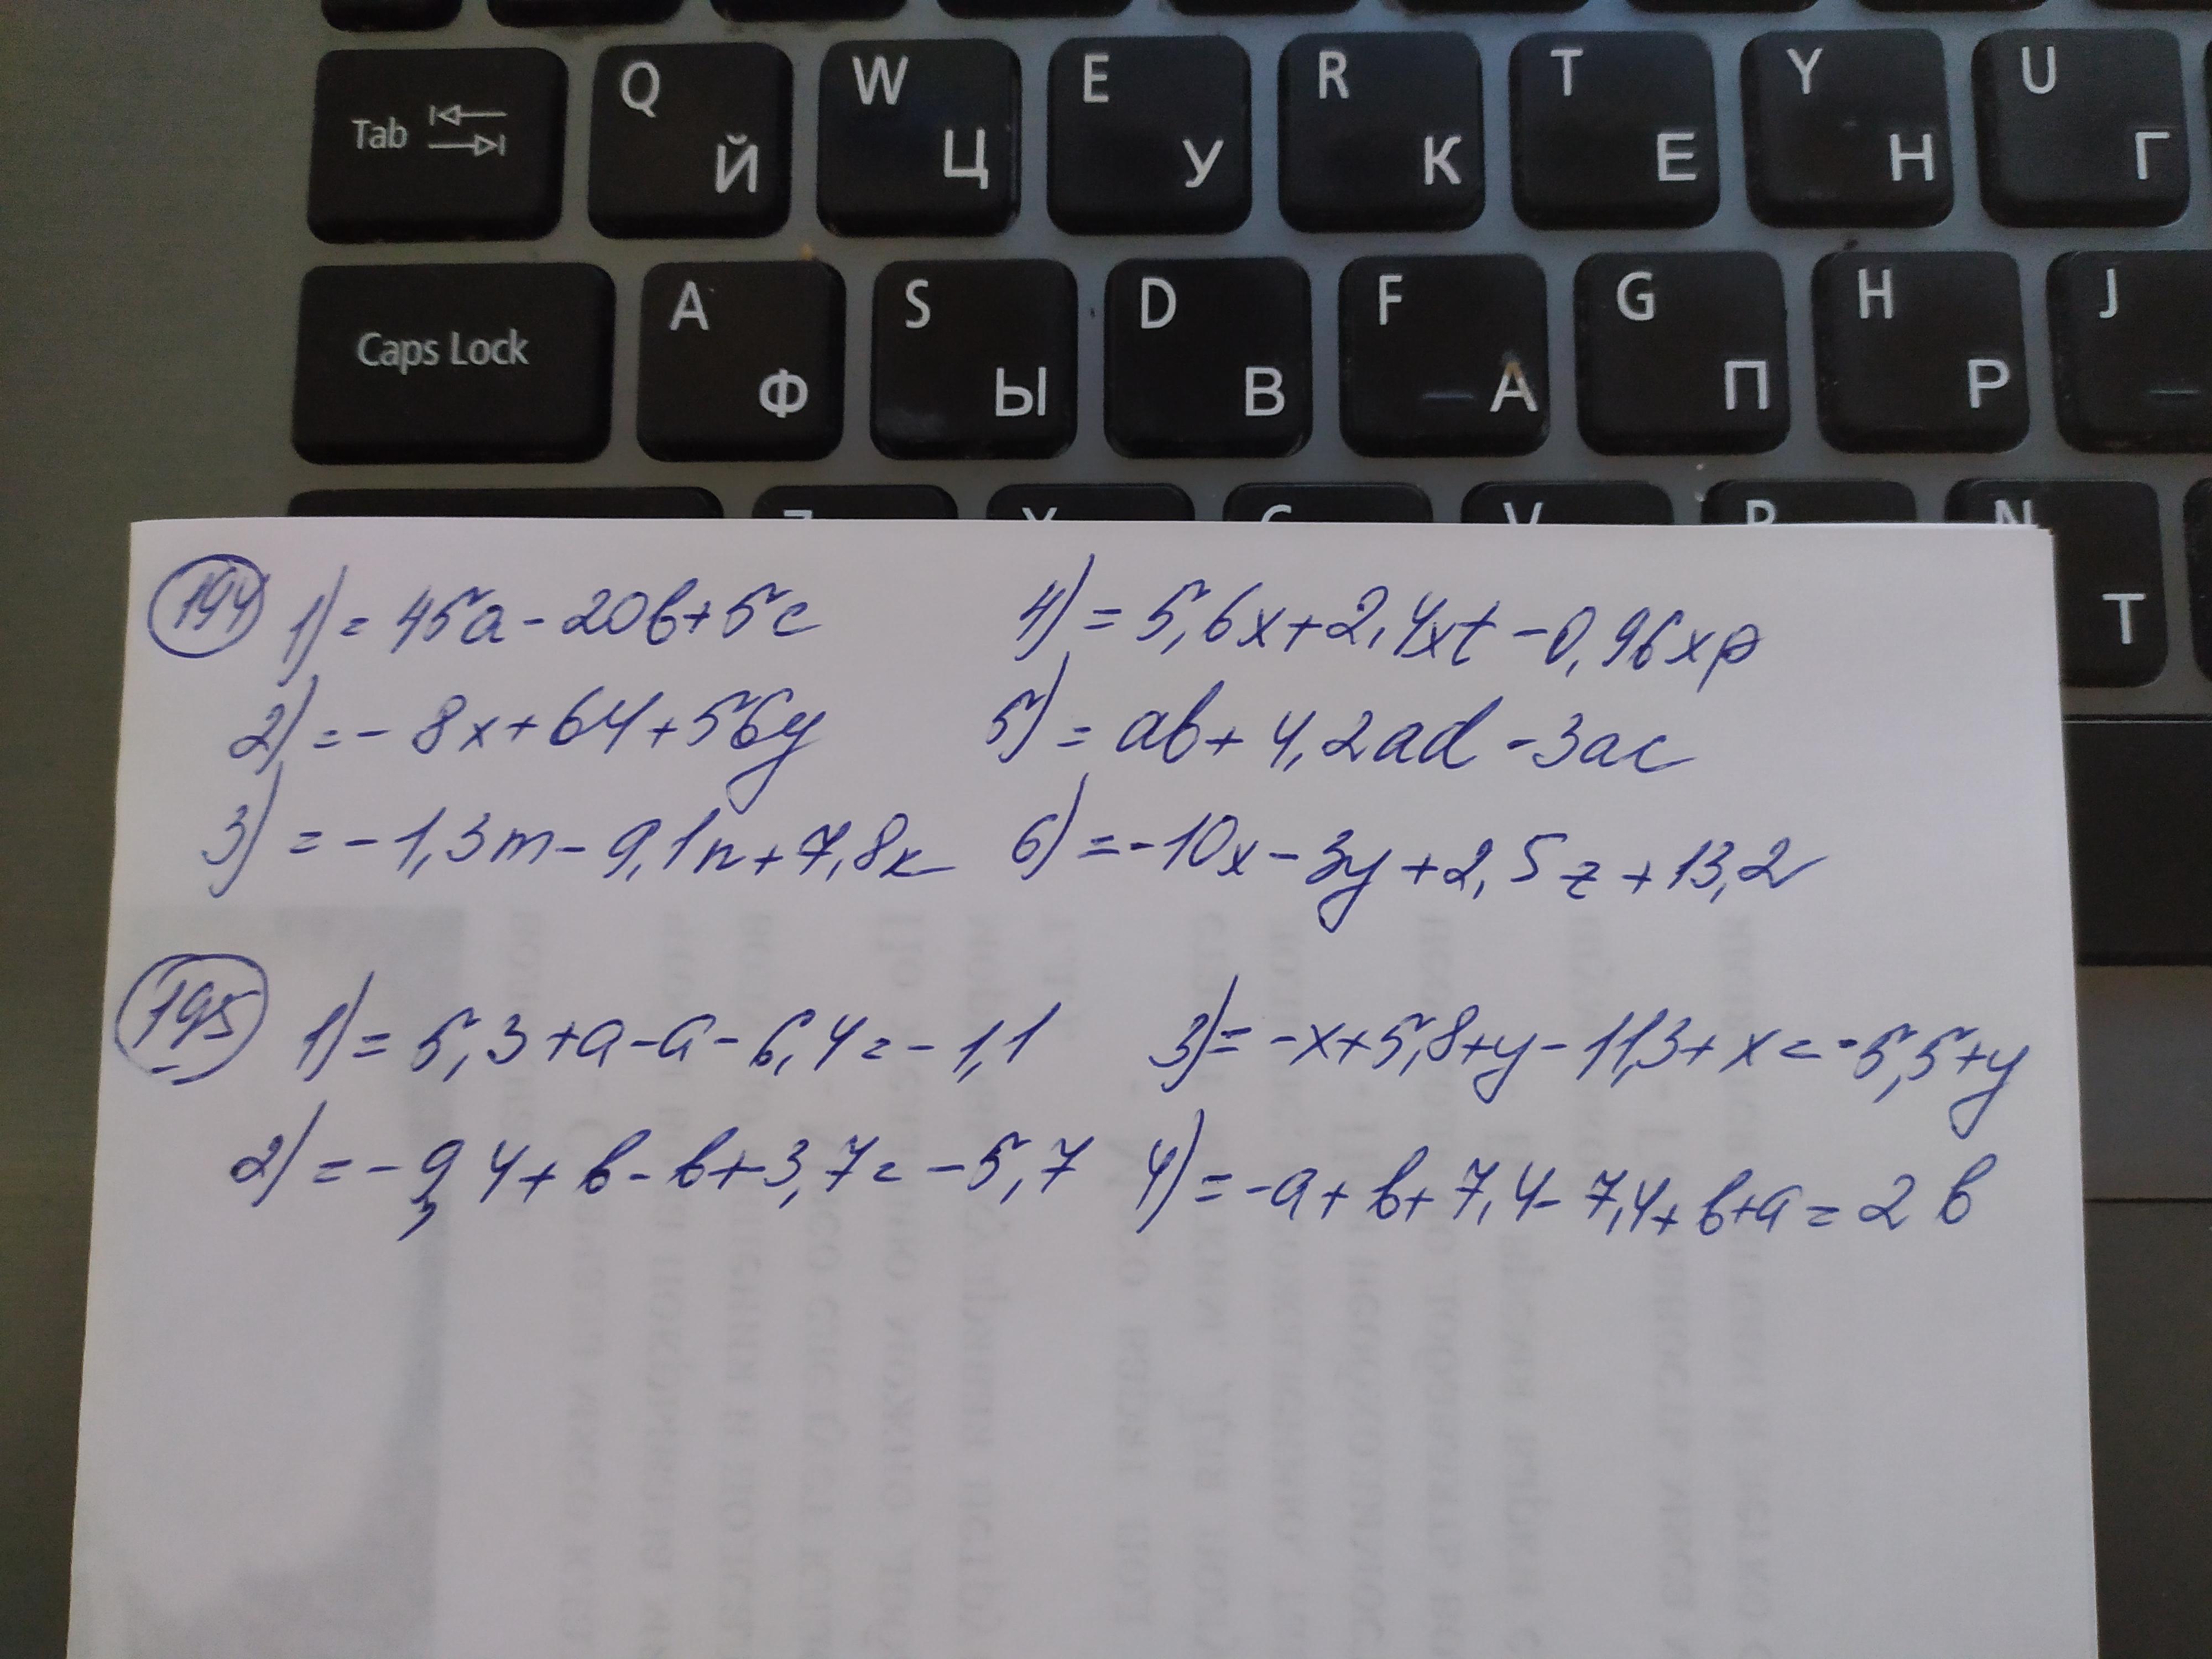 Tab Q Й W Ц E У R К T Е Y Н U Г
Caps Lock A Ф S Ы D В F А G П H Р J
Т
194 1) = 45a - 20b + 5c
2) = - 8x + 64 + 56y
3) = - 1,3m - 9,1n + 7,8k
4) = 5,6x + 2,4xt - 0,96xp
5) = ab + 4,2ad - 3ac
6) = - 10x - 3y + 2,5z + 13,2
195 1) = 5,3 + a - a - 6,4 = - 1,1
2) = - 9,4 + b - b + 3,7 = - 5,7
3) = - x + 5,8 + y - 11,3 + x = - 5,5 + y
4) = - a + b + 7,4 - 7,4 + b + a = 2b